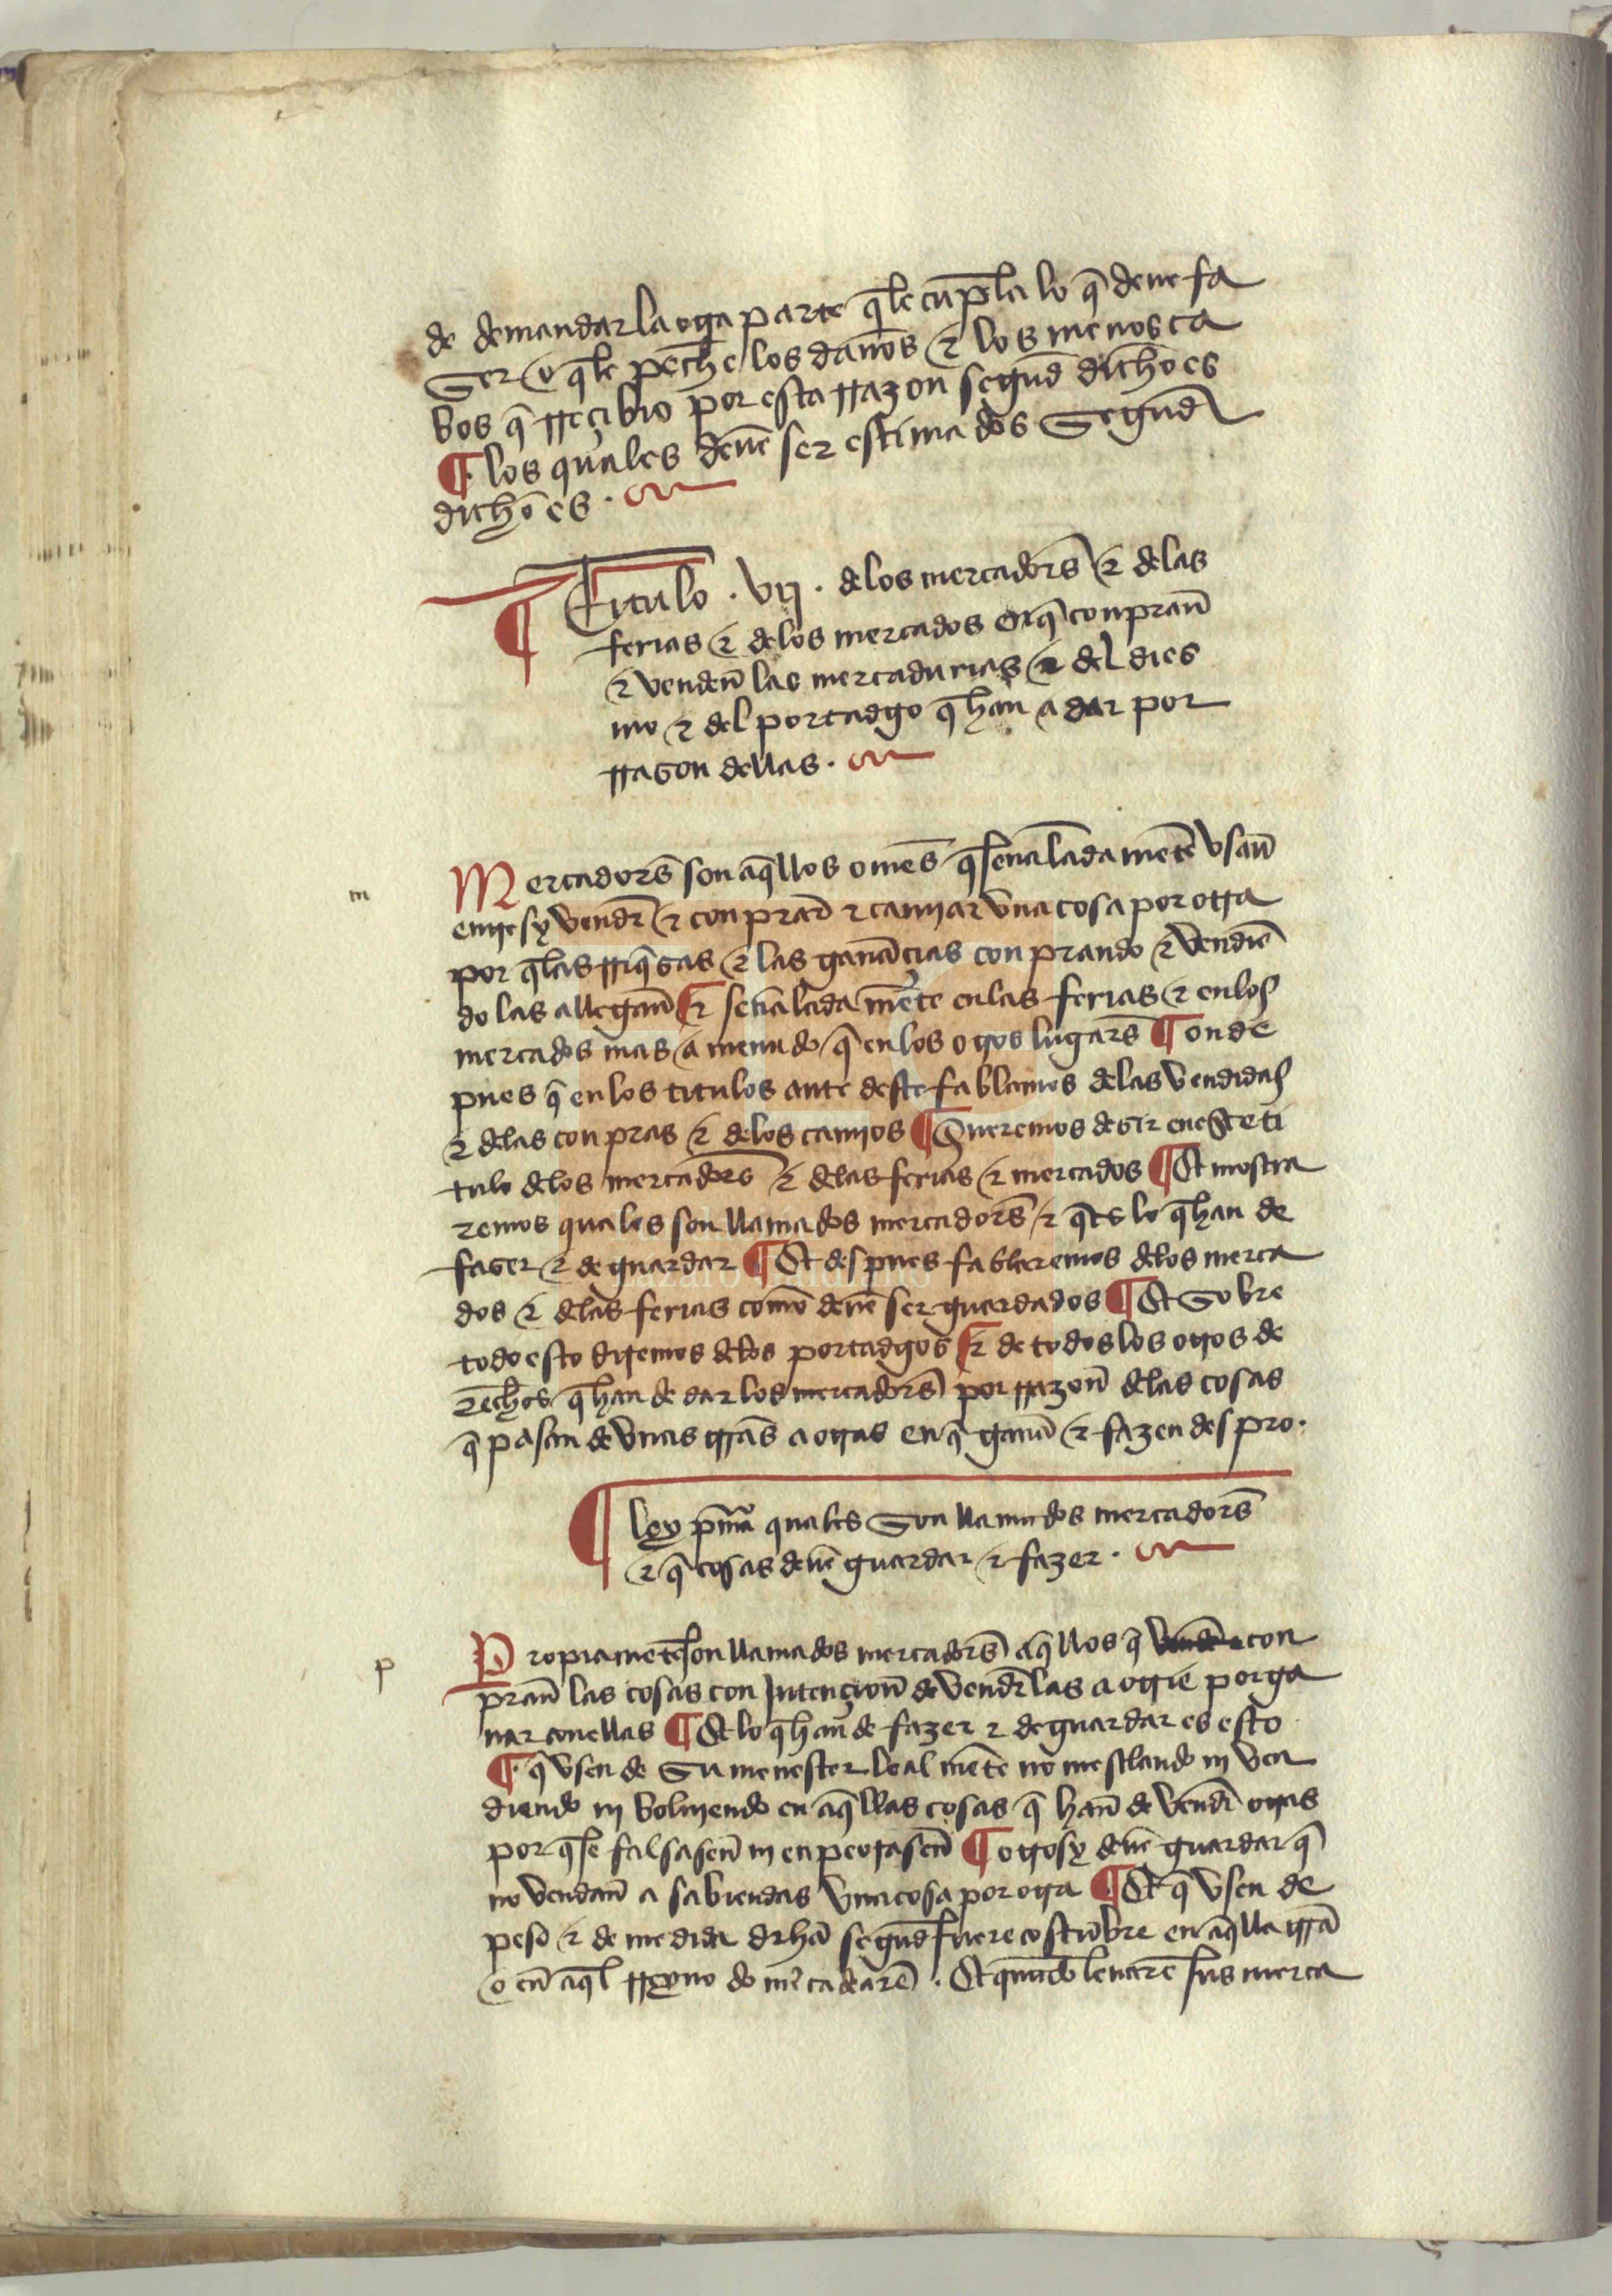 de demandar la otra parte q̄le cũpla lo q̄ deue fa
zer o q̄le peche los dan̄os ⁊ los menosca
bos q̄ rreçibio por esta rrazon segũd dicho es
¶ los quales deuẽ ser estimados segund
dicho es.
¶ Titulo . vij . delos mercadors̃ ⁊ delas
ferias ⁊ delos mercados en q̄ conpran̄
⁊ venden̄ las mercadurias ⁊ del dies
mo ⁊ del portadgo q̄ han a dar por
rrason dellas .
Mercadors̃ son aq̄llos omes̃ q̄ sen̄aladamẽte vsan̄
m
entre sy vendr̃ ⁊ conprar̃ ⁊ camiar vna cosa por otra
por q̄ las rriq̄sas ⁊ las ganãçias conprando ⁊ vendiẽ
do las allegan̄ ⁊ sen̄alada mẽte enlas ferias ⁊ enlos
mercados mas a menudo q̄ enlos otros lugars̃ ¶ onde
pues q̄ enlos titulos ante deste fablamos delas vendidas
⁊ delas conpras ⁊ delos camios ¶ Queremos desir eneste ti
tulo delos mercadors̃ ⁊ delas ferias ⁊ mercados ¶ Et mostra
remos quales son llamados mercadors̃ ⁊ q̄ es lo q̄ han de
faser ⁊ de guardar ¶ Et despues fablaremos delos merca
dos ⁊ delas ferias como deuẽ ser guardados ¶ Et sobre
todo esto diremos delos portadgos ⁊ de todos los otros de
rechos q̄ han de dar los mercadors̃ por rrazon̄ delas cosas
q̄ pasan de vnas trr̃as a otras en q̄ ganã ⁊ fazen des pro.
¶ Ley pm̃a quales son llamados mercadors̃
⁊ q̄ cosas deuẽ guardar ⁊ fazer .
Propiamẽte son llamados mercadors̃ aq̄llos q̄ con
p
pran̄ las cosas con Intençion̄ de vendr̃ las a otrie por ga
nar conellas ¶ Et lo q̄ han̄ de fazer ⁊ de guardar es esto
¶ q̄ vsen de su menester leal mẽte no mesclando ni ven
diendo ni boluiendo en aq̄llas cosas q̄ han̄ de vendr̃ otras
por q̄ se falsasen̄ ni enpeorasen̄ ¶ otrosy deuẽ guardar q̄
no vendan̄ a sabiendas vna cosa por otra ¶ Et q̄ vsen de
peso ⁊ de medida drha segũd fuere costũbre en aq̄lla trr̃a
o en̄ aq̄l rreyno do mercadearẽ . Et quãdo leuarẽ sus merca